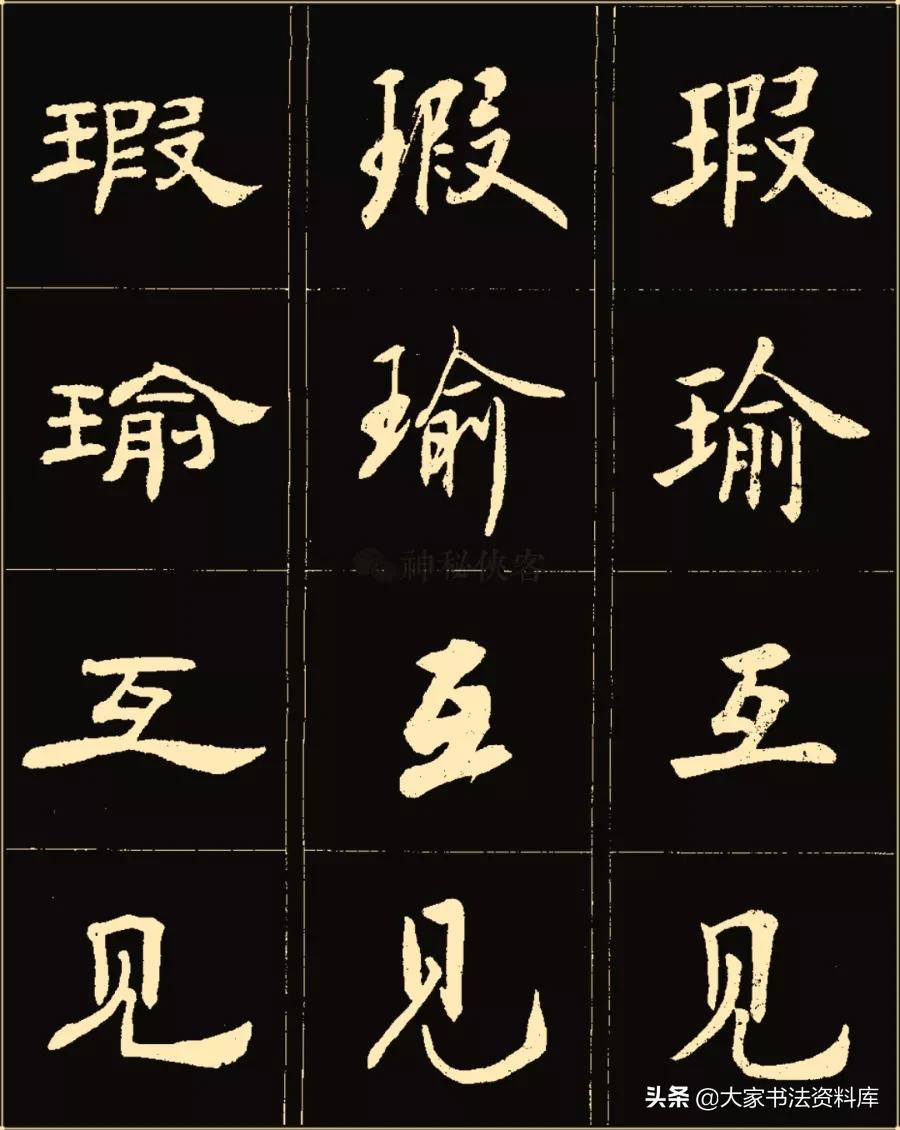 瑕 瑕 瑕
瑜 瑜 瑜
互 互 互
见 见 见
神秘侠客
头条 @大家书法资料库